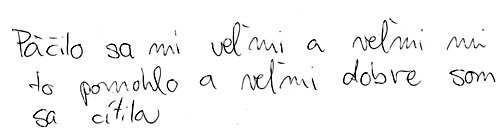 Páčilo sa mi veľmi a veľmi mi
to pomohlo a veľmi dobre som
sa cítila